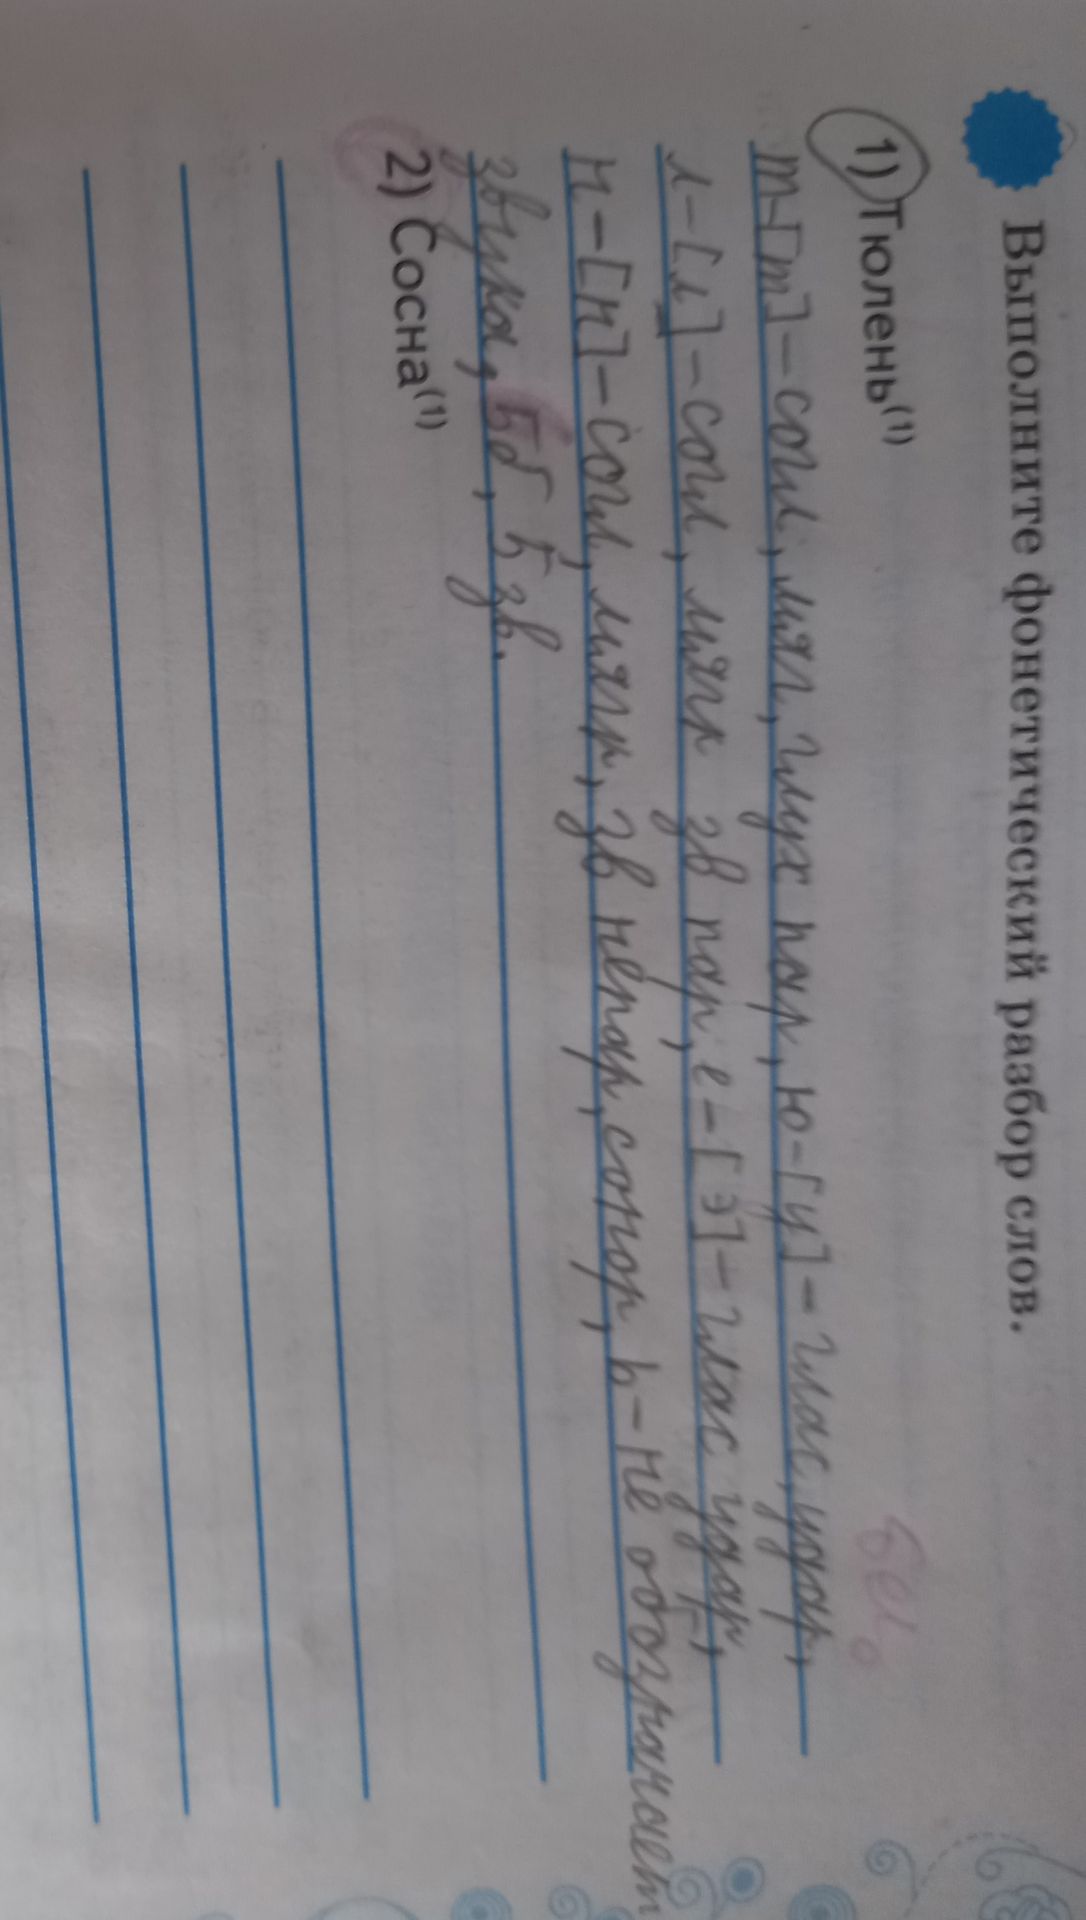 Выполните фонетический разбор слов.
1) Тюлень(1)
т-[т]-согл., мяг, глух пар, ю-[у]-глас, удар,
л-[л]-согл, мягк зв пар, е-[э]-глас удар,
н-[н]-согл, мягр, зв непар, сонор, ь-не обозначает
звука, 5б, 5 зв.
2) Сосна(1)